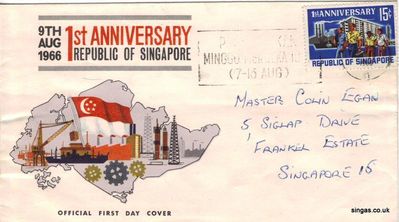 9TH
AUG
1966
1ST ANNIVERSARY
REPUBLIC OF SINGAPORE
1ST ANNIVERSARY
15c
REPUBLIC OF SINGAPORE
MINGGU
(7-13 AUG)
Master Colin Egan
5 Siglap Drive
Frankel Estate
Singapore 15
OFFICIAL FIRST DAY COVER
singas.co.uk